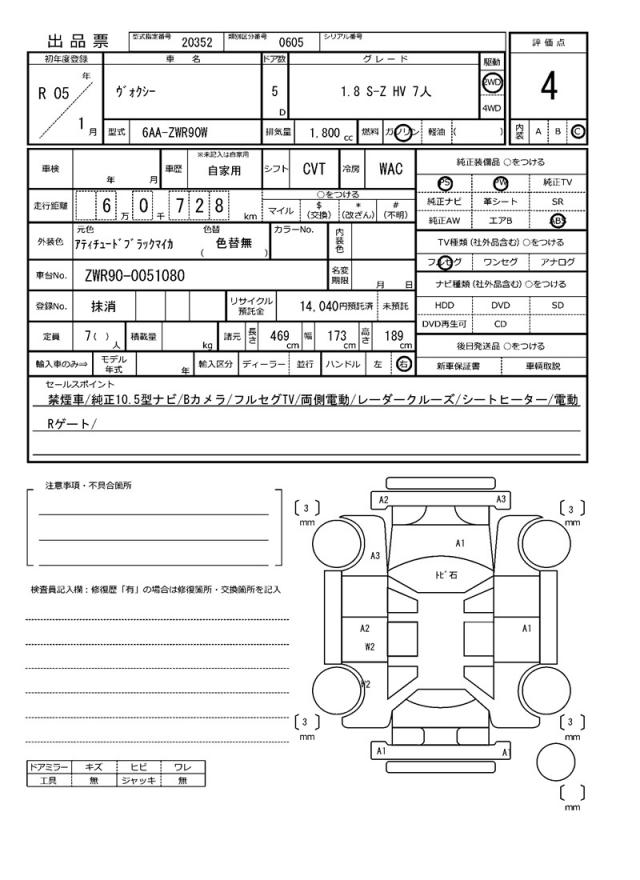 出品票
型式指定番号 20352 類別区分番号 0605 シリアル番号
評価点
4
内装 A B C
初年度登録 車名 ドア数 グレード 駆動
R 05 年 1 月
ヴォクシー
5 D
1.8 S-Z HV 7人
2WD
4WD
型式 6AA-ZWR90W 排気量 1.800 cc 燃料 ガソリン 軽油 ( )
車検 年 月 車歴 ※未記入は自家用 自家用 シフト CVT 冷房 WAC
走行距離 6 万 0 千 7 2 8 km
○をつける
マイル $(交換) *(改ざん) #(不明)
外装色 元色 アティチュードブラックマイカ 色替 ( 色替無 ) カラーNo. 内装色
車台No. ZWR90-0051080 名変期限 月 日
登録No. 抹消 リサイクル預託金 14,040円預託済 未預託
定員 7( ) 人 積載量 kg 諸元 長さ 469 cm 幅 173 cm 高さ 189 cm
輸入車のみ⇒ モデル年式 年 輸入区分 ディーラー 並行 ハンドル 左 右
純正装備品 ○をつける
PS PW 純正TV
純正ナビ 革シート SR
純正AW エアB ABS
TV種類 (社外品含む) ○をつける
フルセグ ワンセグ アナログ
ナビ種類 (社外品含む) ○をつける
HDD DVD SD
DVD再生可 CD
後日発送品 ○をつける
新車保証書 車輌取説
セールスポイント
禁煙車/純正10.5型ナビ/Bカメラ/フルセグTV/両側電動/レーダークルーズ/シートヒーター/電動
Rゲート/
注意事項・不具合箇所
検査員記入欄：修復歴「有」の場合は修復箇所・交換箇所を記入
ドアミラー キズ ヒビ ワレ
工具 無 ジャッキ 無
A2 A3
3 mm
3 mm
A1
A3
トビ石
A2
W2
A1
W2
3 mm
3 mm
A1 A1
mm